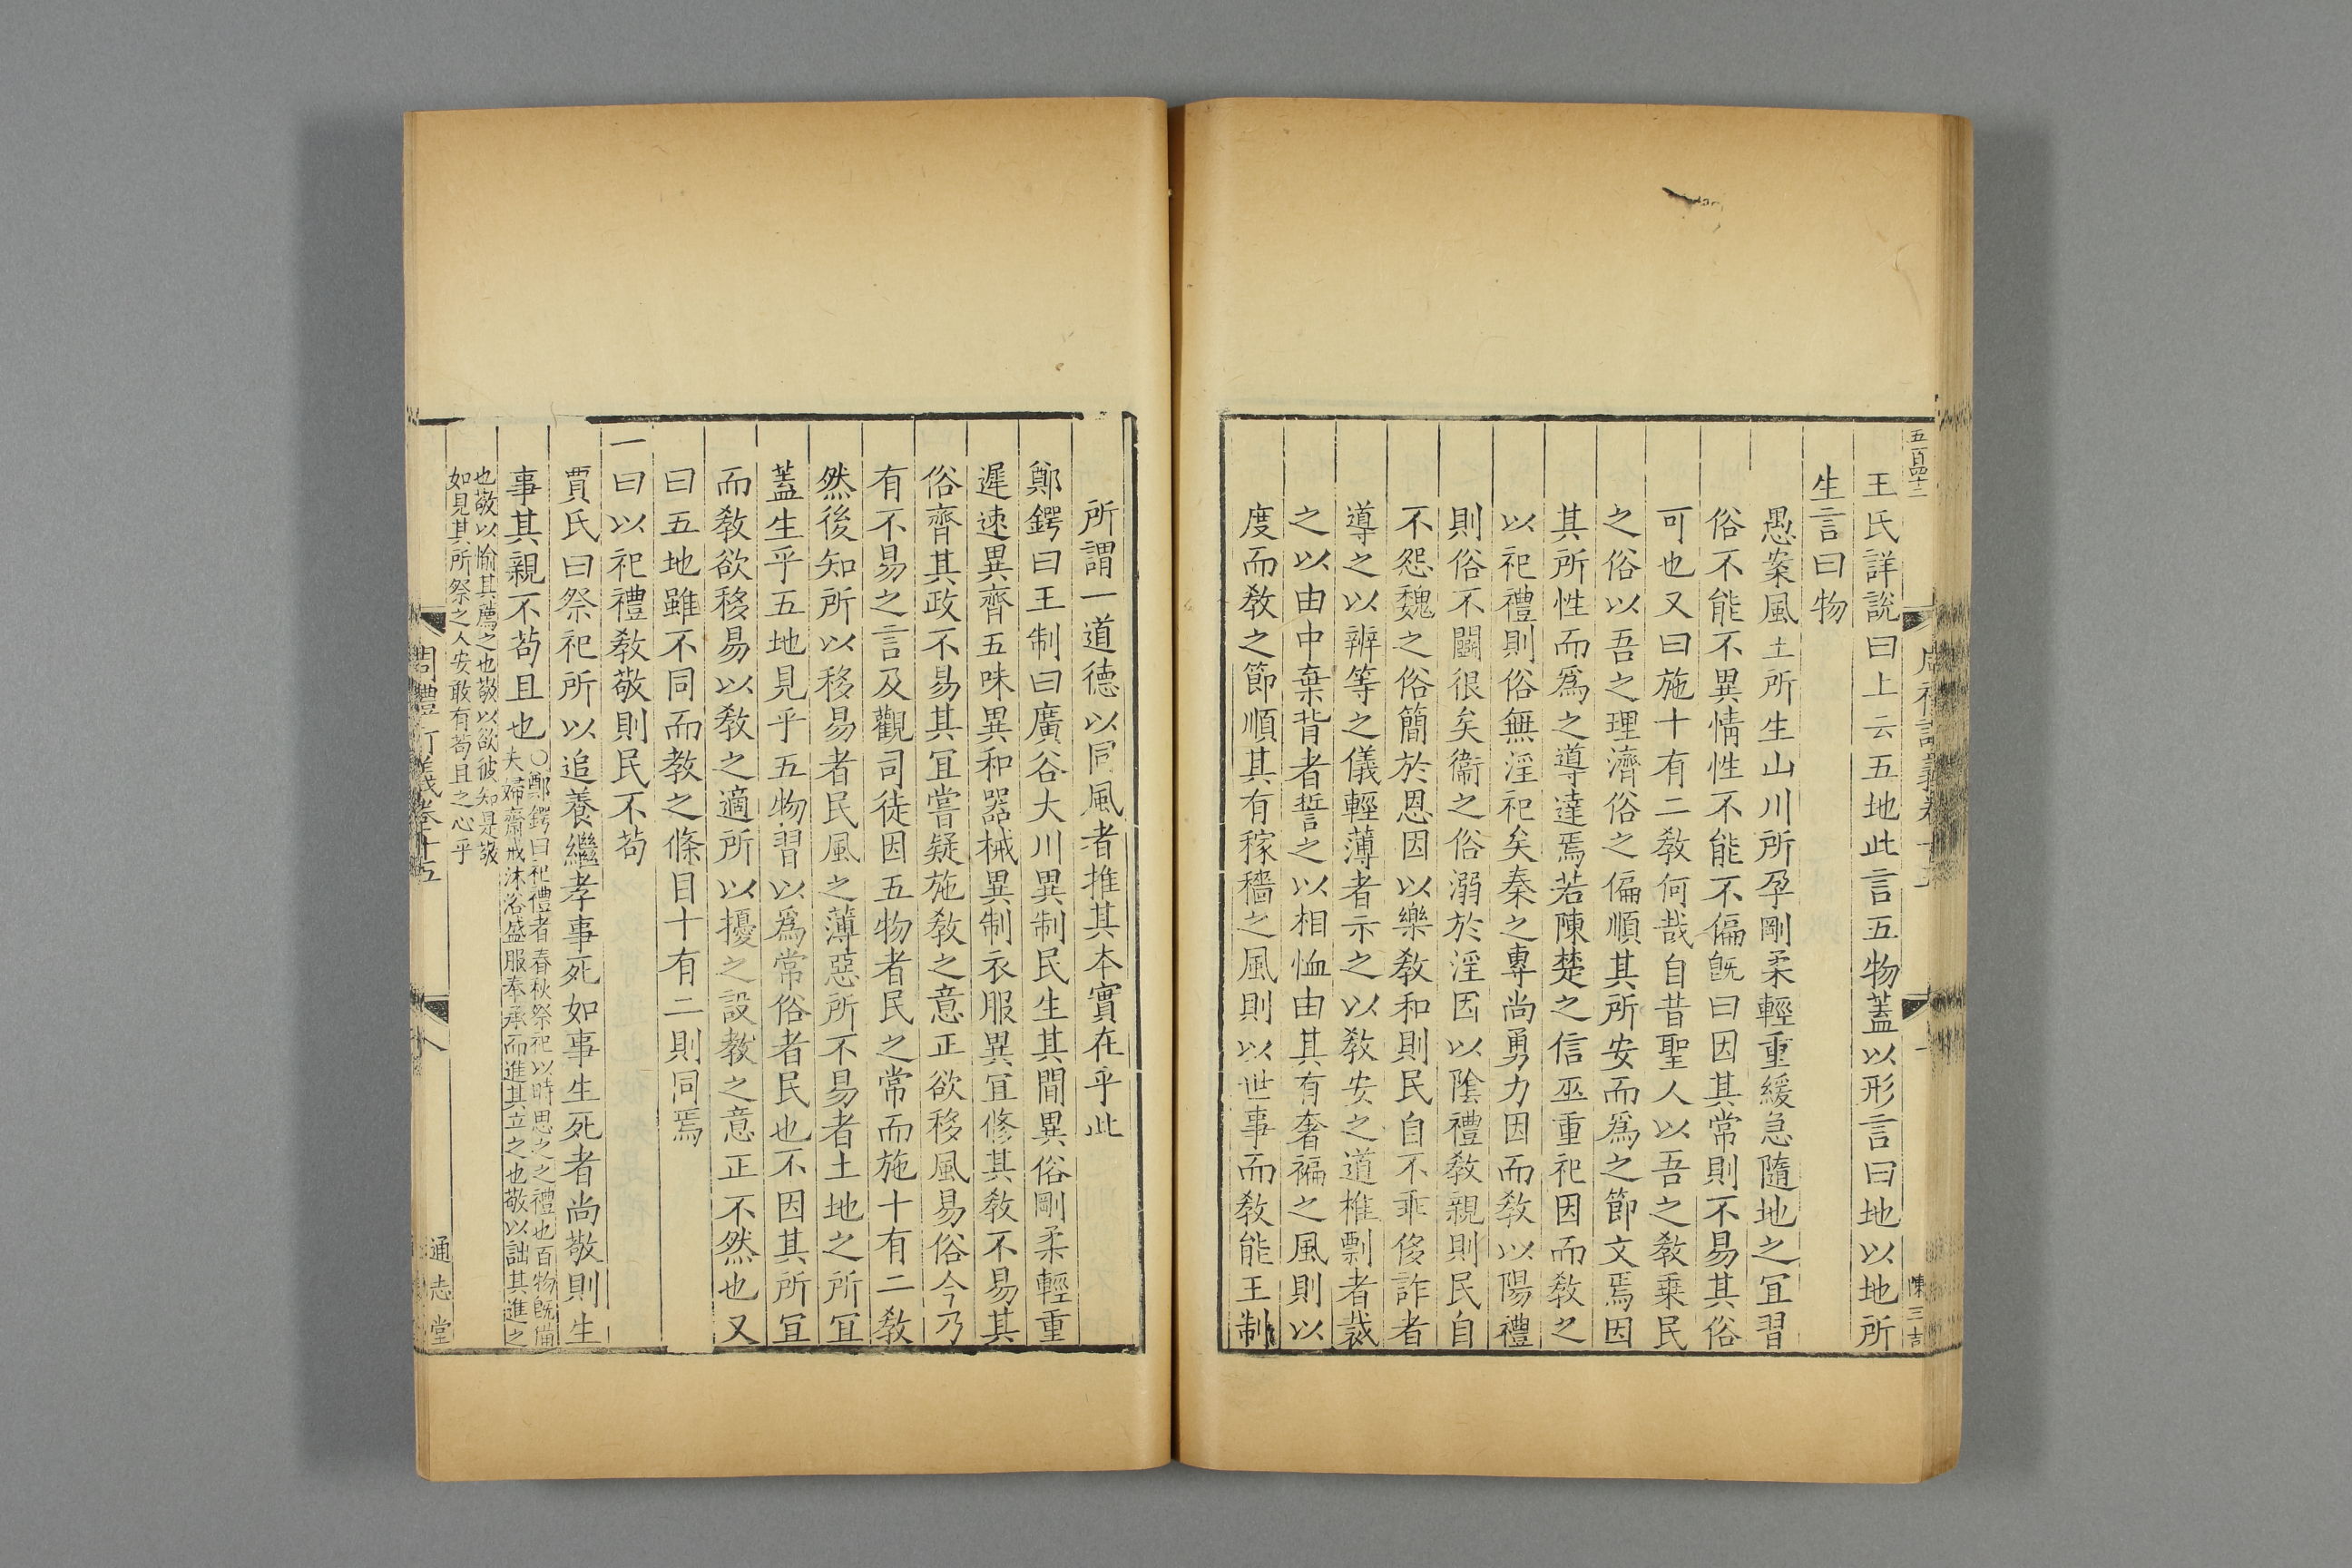 五百四十二
王氏詳說曰上云五地此言五物蓋以形言曰地以地所
生言曰物
愚案風土所生山川所孕剛柔輕重緩急隨地之宜習
俗不能不異情性不能不偏旣曰因其常則不易其俗
可也又曰施十有二敎何哉自昔聖人以吾之敎乗民
之俗以吾之理濟俗之偏順其所安而爲之節文焉因
其所性而爲之導達焉若陳楚之信巫重祀因而敎之
以祀禮則俗無淫祀矣秦之專尚勇力因而敎以陽禮
則俗不鬬很矣衞之俗溺於淫因以隂禮敎親則民自
不怨魏之俗簡於恩因以樂敎和則民自不乖侈詐者
導之以辨等之儀輕薄者示之以敎安之道椎剽者裁
之以由中棄背者誓之以相恤由其有奢褊之風則以
度而敎之節順其有稼穡之風則以世事而敎能王制
陳三吉
所謂一道德以同風者推其本實在乎此
鄭鍔曰王制曰廣谷大川異制民生其間異俗剛柔輕重
遲速異齊五味異和器械異制衣服異宜修其敎不易其
俗齊其政不易其宜嘗疑施敎之意正欲移風易俗今乃
有不易之言及觀司徒因五物者民之常而施十有二敎
然後知所以移易者民風之薄惡所不易者土地之所宜
蓋生乎五地見乎五物習以爲常俗者民也不因其所宜
而敎欲移易以敎之適所以擾之設敎之意正不然也又
曰五地雖不同而敎之條目十有二則同焉
一曰以祀禮敎敬則民不苟
賈氏曰祭祀所以追養繼孝事死如事生死者尚敬則生
事其親不苟且也〇鄭鍔曰祀禮者春秋祭祀以時思之之禮也百物旣備
夫婦齋戒沐浴盛服奉承而進其立之也敬以詘其進之
也敬以愉其薦之也敬以欲彼知是敬
如見其所祭之人安敢有苟且之心乎
周禮訂義卷十五
八
通志堂